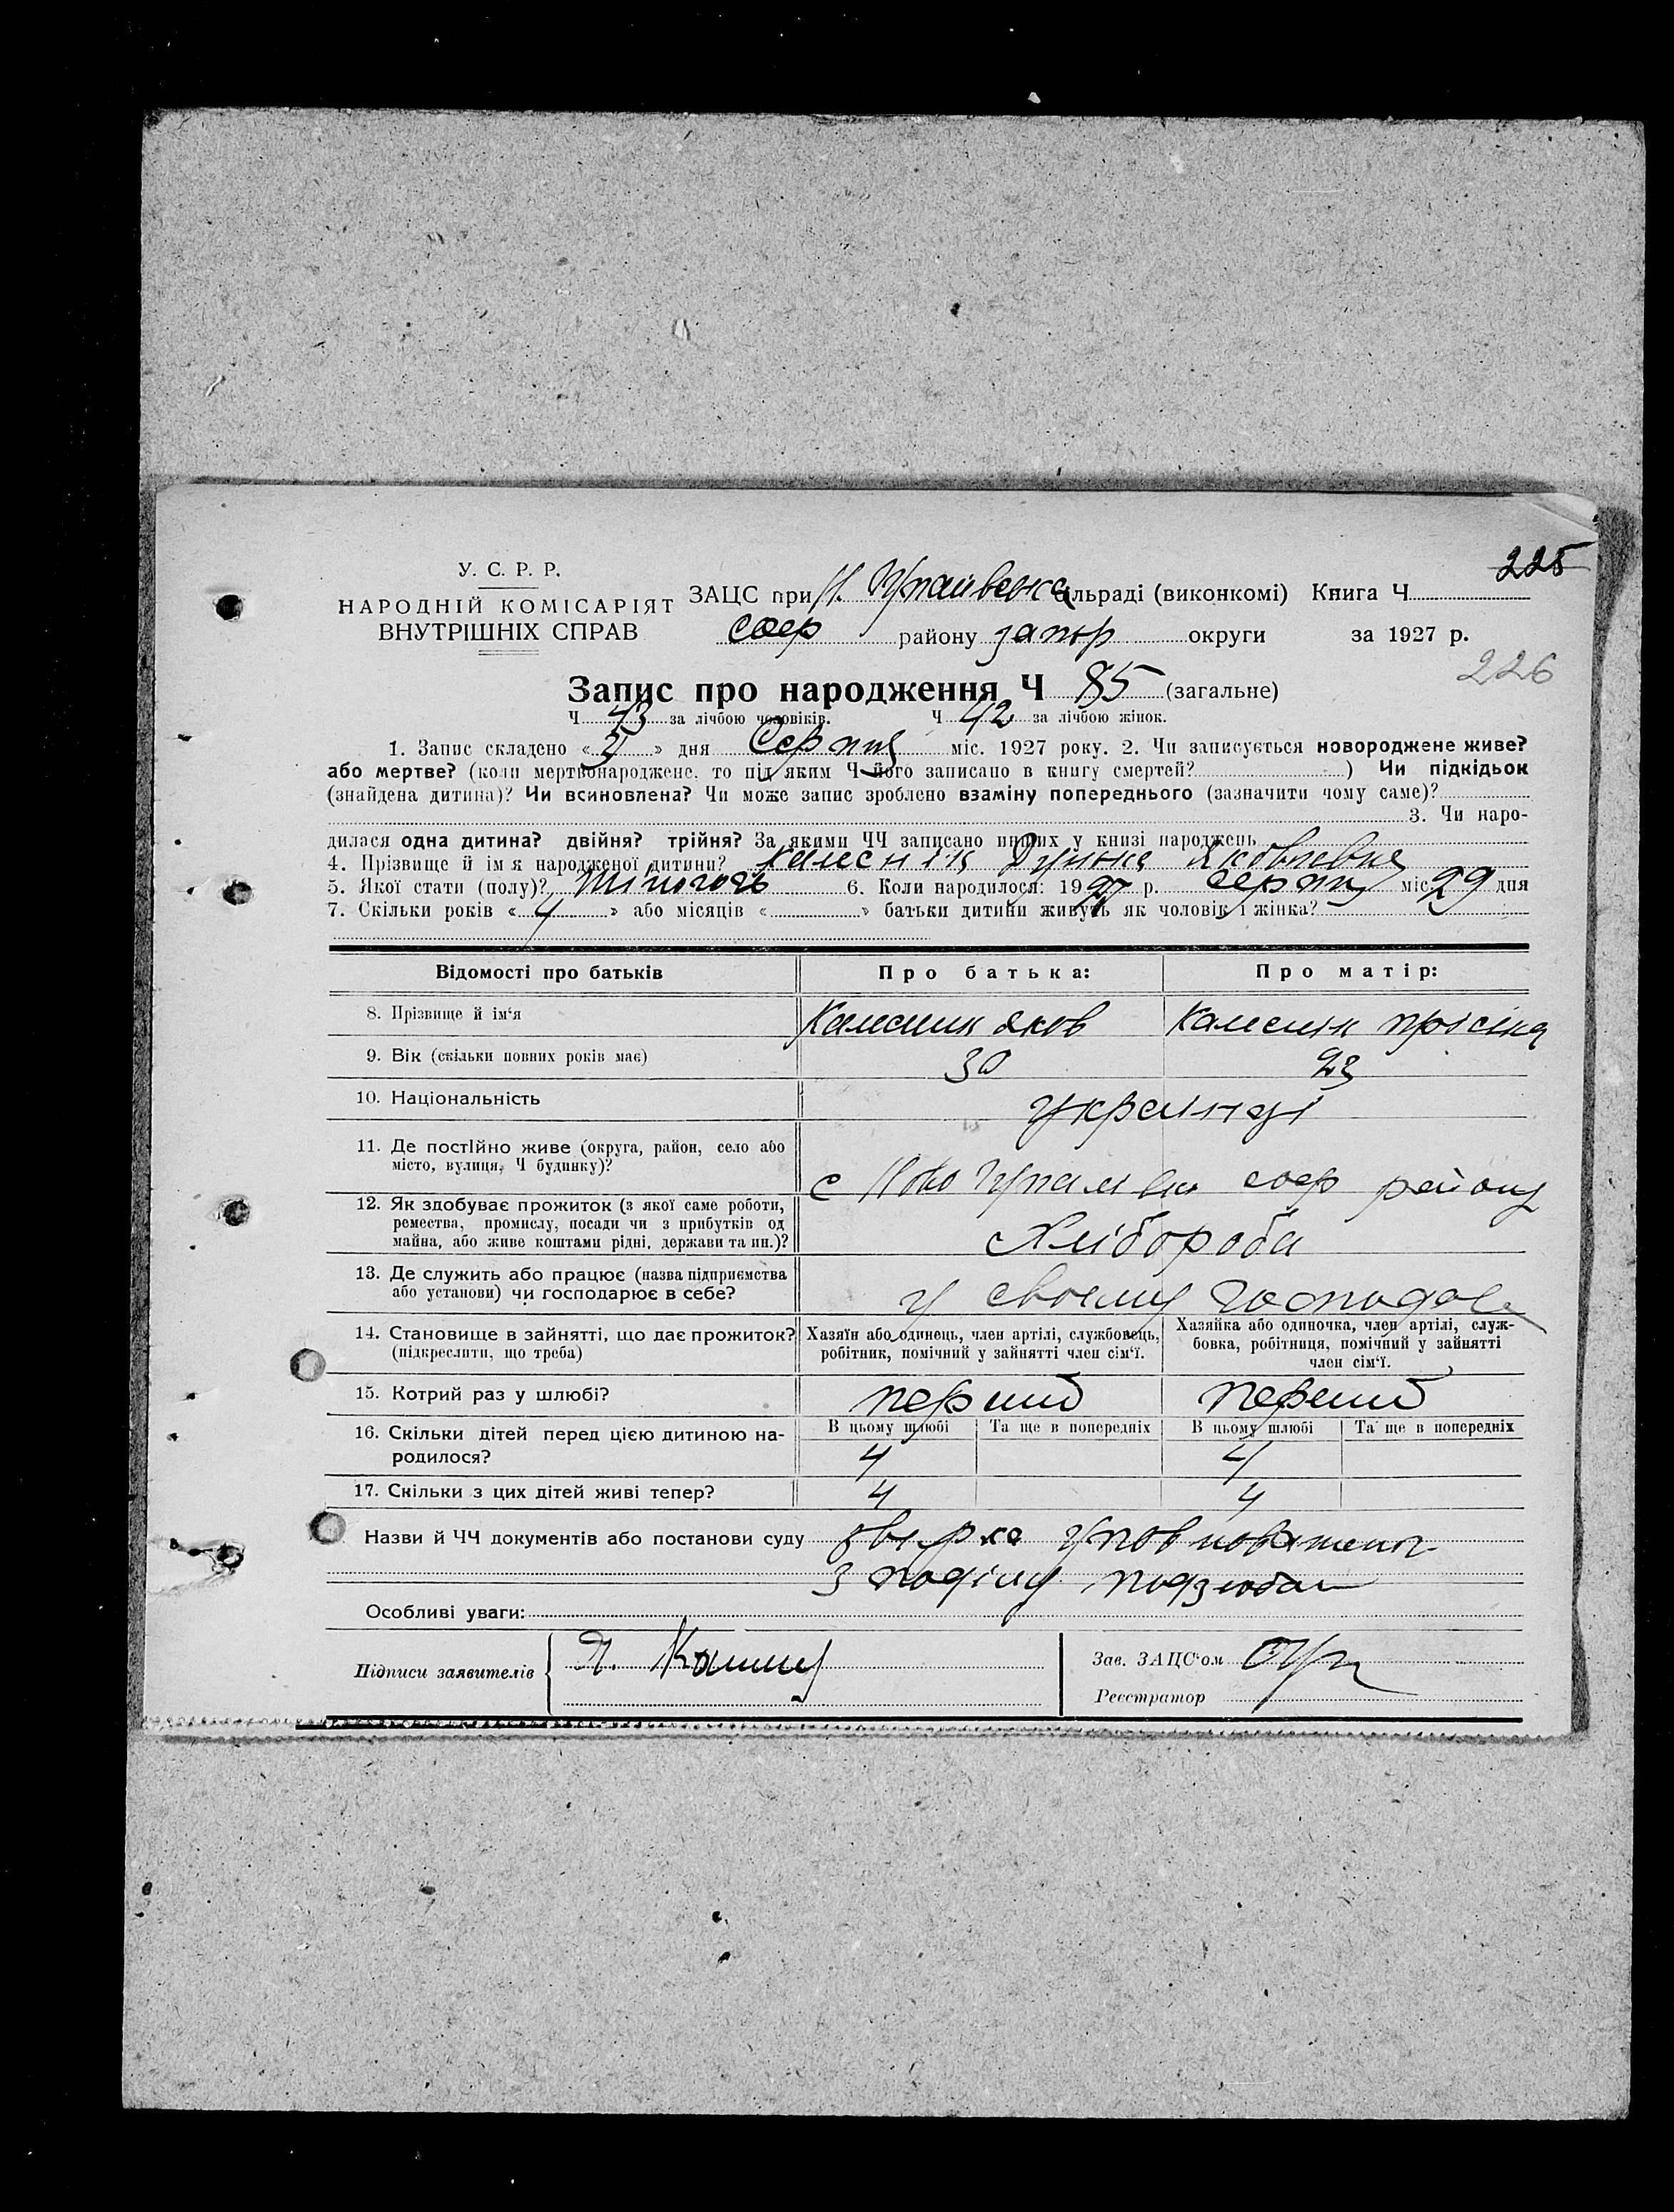 225
У. С. Р. Р.
НАРОДНІЙ КОМІСАРІЯТ
ВНУТРІШНІХ СПРАВ
ЗАЦС при Н. сільраді (виконкомі) Книга Ч
району запор округи за 1927 р.
226
Запис про народження Ч 85 (загальне)
Ч 43 за лічбою чоловіків. Ч 42 за лічбою жінок.
1. Запис складено « » дня Серпня міс. 1927 року. 2. Чи записується новороджене живе?
або мертве? (коли мертвонароджене, то під яким Ч його записано в книгу смертей? ) Чи підкідьок
(знайдена дитина)? Чи всиновлена? Чи може запис зроблено взаміну попереднього (зазначити чому саме)?
3. Чи наро-
дилася одна дитина? двійня? трійня? За якими ЧЧ записано инших у книзі народжень
4. Прізвище й ім'я народженої дитини? Яковлевна
5. Якої стати (полу)? 6. Коли народилося: 1927 р. серпня міс. 29 дня
7. Скільки років « 4 » або місяців « » батьки дитини живуть як чоловік і жінка?
Відомості про батьків Про батька: Про матір:
8. Прізвище й ім'я Калесник Яков Калесник
9. Вік (скільки повних років має) 30 23
10. Національність українці
11. Де постійно живе (округа, район, село або
місто, вулиця, Ч будинку)?
с Ново району
12. Як здобуває прожиток (з якої саме роботи,
ремества, промислу, посади чи з прибутків од
майна, або живе коштами рідні, держави та ин.)?
Хлібороба
13. Де служить або працює (назва підприємства
або установи) чи господарює в себе?
у своему господа
14. Становище в зайнятті, що дає прожиток?
(підкреслити, що треба)
Хазяїн або одинець, член артілі, службовець,
робітник, помічний у зайнятті член сім'ї.
Хазяйка або одиночка, член артілі, служ-
бовка, робітниця, помічний у зайнятті
член сім'ї.
15. Котрий раз у шлюбі? перший перший
16. Скільки дітей перед цією дитиною на-
родилося?
В цьому шлюбі Та ще в попередніх В цьому шлюбі Та ще в попередніх
4 4
17. Скільки з цих дітей живі тепер? 4 4
Назви й ЧЧ документів або постанови суду
З
Особливі уваги:
Підписи заявителів Я.
Зав. ЗАЦС'ом
Реєстратор